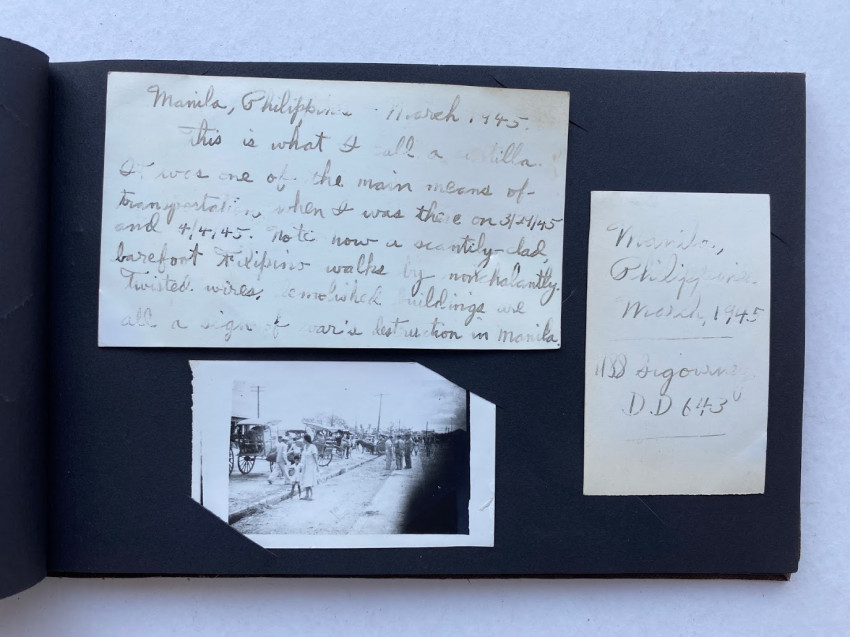 Manila, Philippine March 1945.
This is what I call a
It was one of the main means of
transportation when I was there on 3/29/45
and 4/4/45. Note now a scantily-clad,
barefoot Filipino walks by nonchalantly.
Twisted wires, demolished buildings are
all a sign of war's destruction in Manila.
Manila,
Philippine
March, 1945
USS Sigourney
D.D 643